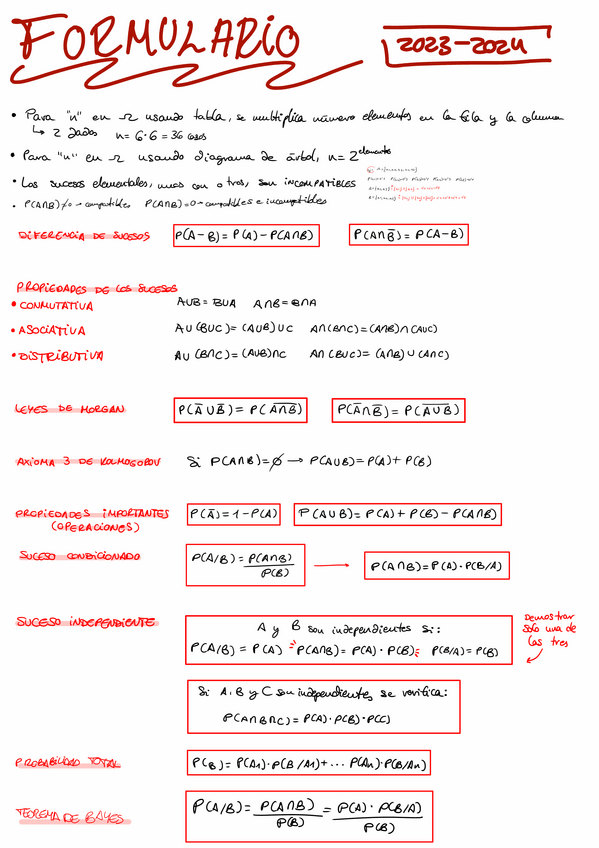 FORMULARIO
2023-2024
• Para "n" en Ω usando tabla, se multiplica número elementos en la fila y la columna
↳ 2 dados n= 6·6 = 36 casos
• Para "n" en Ω usando diagrama de árbol, n= 2^elementos
• Los sucesos elementales, unos con otros, son INCOMPATIBLES
• P(A∩B)≠0 → compatibles P(A∩B)=0 → compatibles e incompatibles
DIFERENCIA DE SUCESOS P(A-B)= P(A)-P(A∩B) P(A∩B̅)= P(A-B)
PROPIEDADES DE LOS SUCESOS
• CONMUTATIVA A∪B = B∪A A∩B = B∩A
• ASOCIATIVA A∪(B∪C)= (A∪B)∪C A∩(B∩C)=(A∩B)∩(A∪C)
• DISTRIBUTIVA A∪(B∩C)= (A∪B)∩C A∩(B∪C)= (A∩B)∪(A∩C)
LEYES DE MORGAN P(A̅∪B̅)= P(A̅∩̅B̅) P(A̅∩B̅)= P(A̅∪̅B̅)
AXIOMA 3 DE KOLMOGOROV Si P(A∩B)=∅ → P(A∪B)= P(A)+P(B)
PROPIEDADES IMPORTANTES P(A̅)= 1-P(A) P(A∪B)= P(A)+P(B)-P(A∩B)
(OPERACIONES)
SUCESO CONDICIONADO P(A/B)= P(A∩B)/P(B) → P(A∩B)= P(A)·P(B/A)
SUCESO INDEPENDIENTE A y B son independientes si:
P(A/B)= P(A) = P(A∩B)= P(A)·P(B) = P(B/A)= P(B)
Demostrar
solo una de
las tres
Si A, B y C son independientes se verifica:
P(A∩B∩C)= P(A)·P(B)·P(C)
PROBABILIDAD TOTAL P(B)= P(A1)·P(B/A1)+... P(An)·P(B/An)
TEOREMA DE BAYES P(A/B)= P(A∩B)/P(B) = P(A)·P(B/A)/P(B)